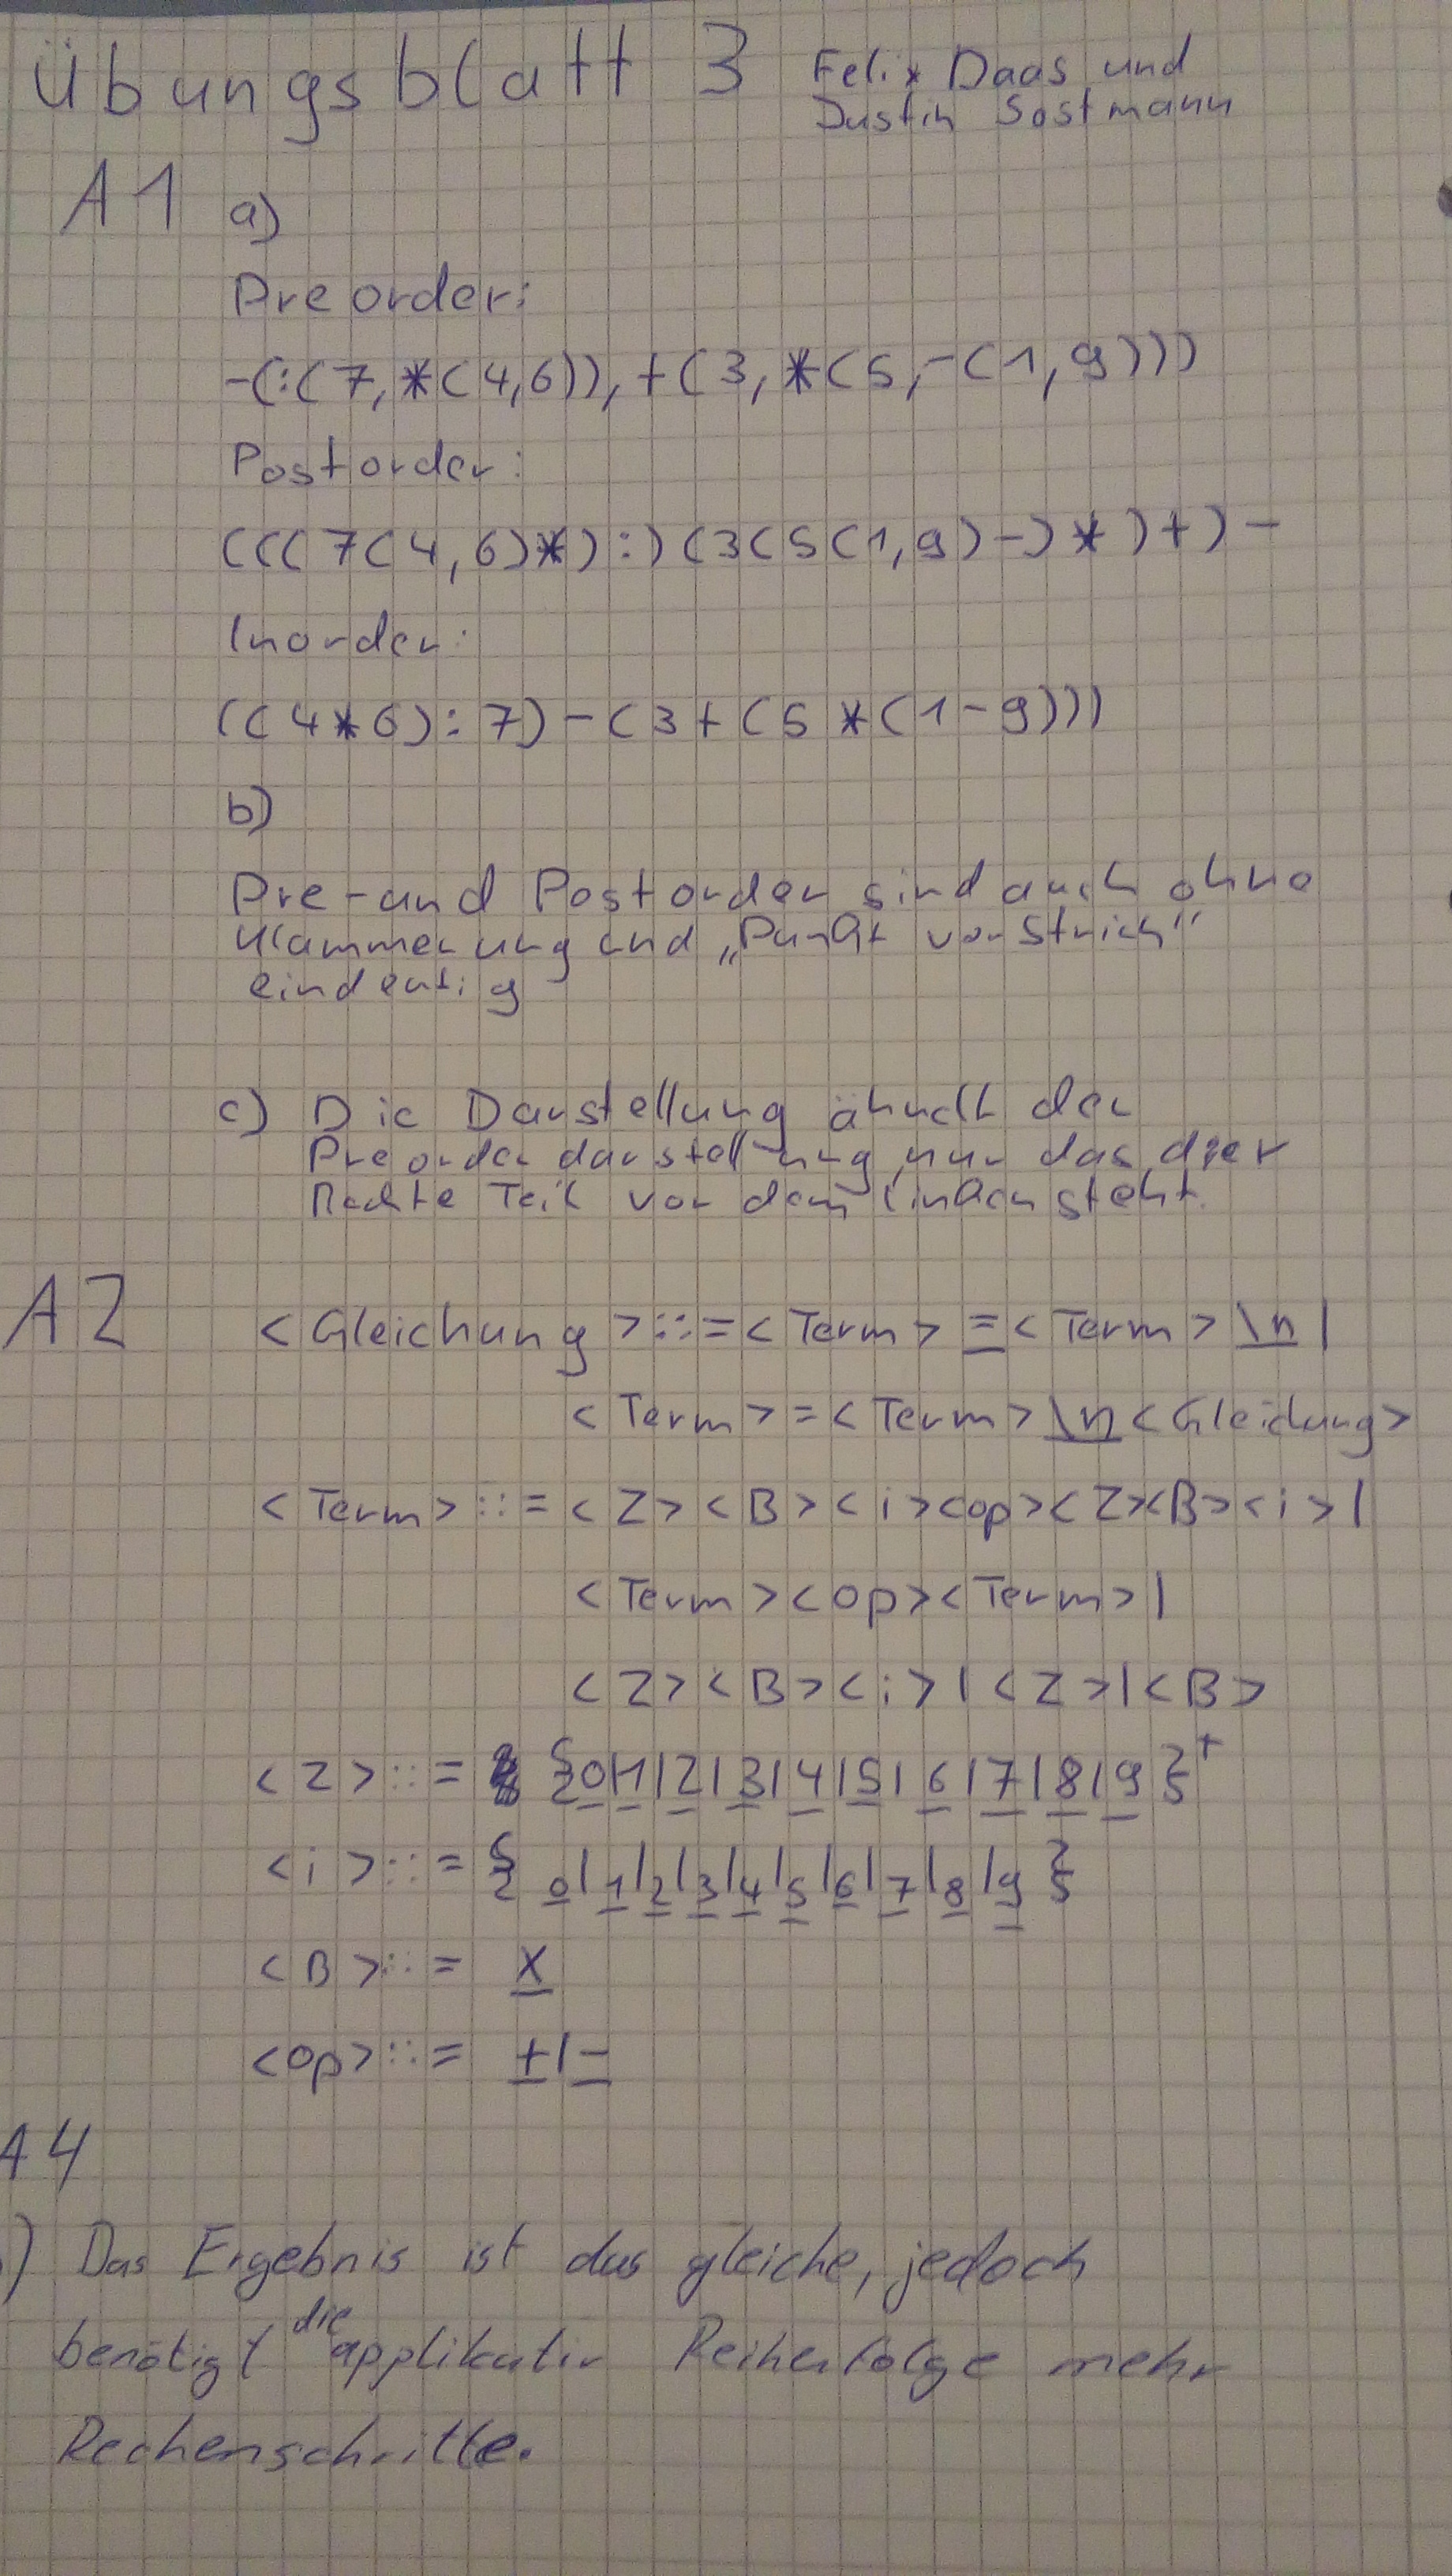 Übungsblatt 3 Felix Daas und
Justin Sostmann
A1 a)
Preorder:
-(:(7,*(4,6)),+(3,*(5,-(1,9)))
Postorder:
(((7(4,6)*):)(3(5(1,9)-)*)+)-
Inorder:
((4*6):7)-(3+(5*(1-9)))
b)
Pre-und Postorder sind auch ohne
Klammerung und „Punkt vor Strich"
eindeutig
c) Die Darstellung ähnelt der
Preorderdarstellung, nur das der
Rechte Teil vor dem linken steht.
A2 <Gleichung>::=<Term>=<Term>\n|
<Term>=<Term>\n<Gleichung>
<Term>::=<Z><B><i><op><Z><B><i>|
<Term><op><Term>|
<Z><B><i>|<Z>|<B>
<Z>::= {0|1|2|3|4|5|6|7|8|9}+
<i>::={0|1|2|3|4|5|6|7|8|9}
<B>::= x
<op>::= +|-
A4
) Das Ergebnis ist das gleiche, jedoch
benötigt die applikativ Reihenfolge mehr
Rechenschritte.